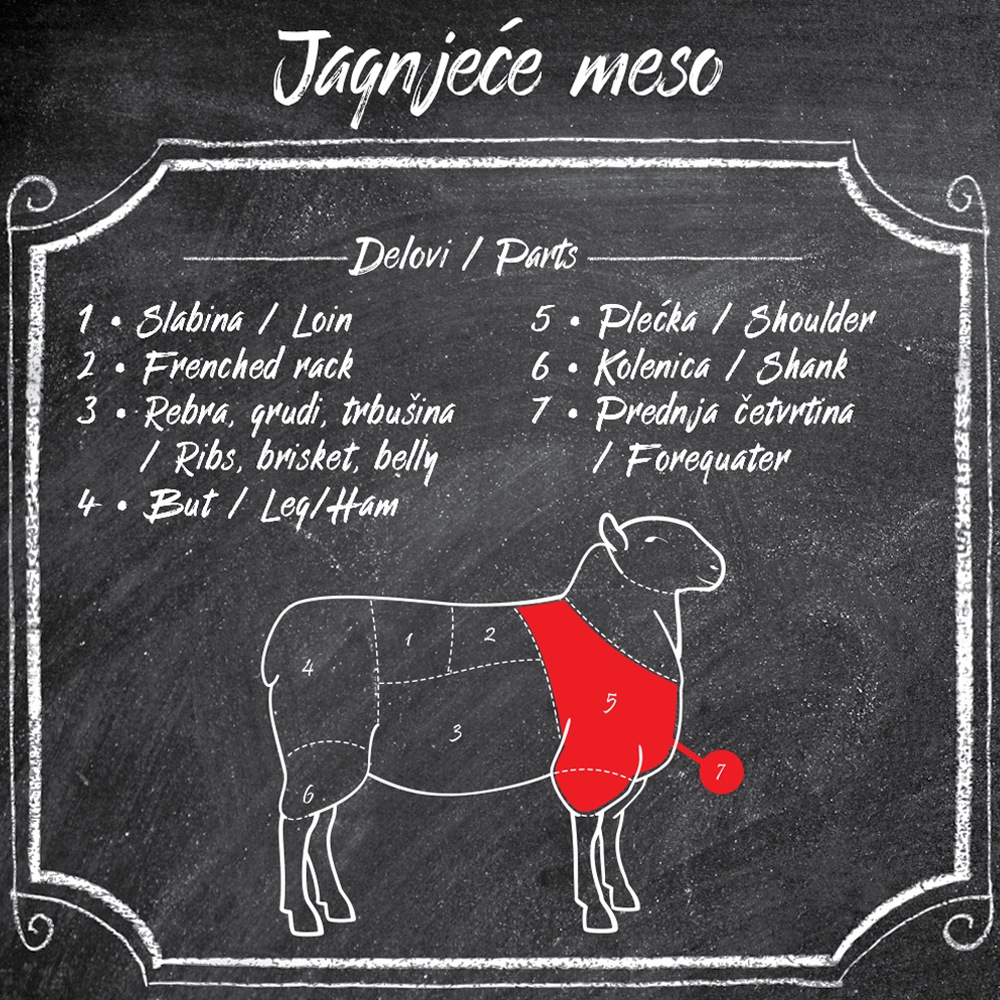 Jagnjeće meso
Delovi / Parts
1 • Slabina / Loin
2 • Frenched rack
3 • Rebra, grudi, trbušina
/ Ribs, brisket, belly
4 • But / Leg/Ham
5 • Plećka / Shoulder
6 • Kolenica / Shank
7 • Prednja četvrtina
/ Forequater
1
2
4
5
3
7
6